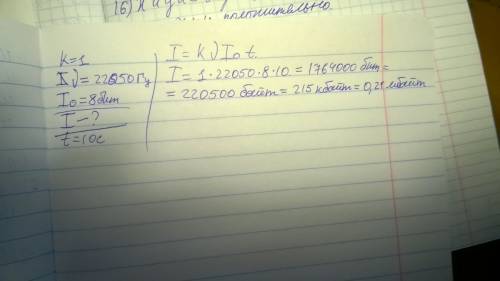 k=1
ν = 22050 Гц
I₀ = 8 бит
I - ?
t = 10с
I = k ν I₀ t.
I = 1 · 22050 · 8 · 10 = 1764000 бит =
= 220500 байт = 215 кбайт = 0,21 мбайт